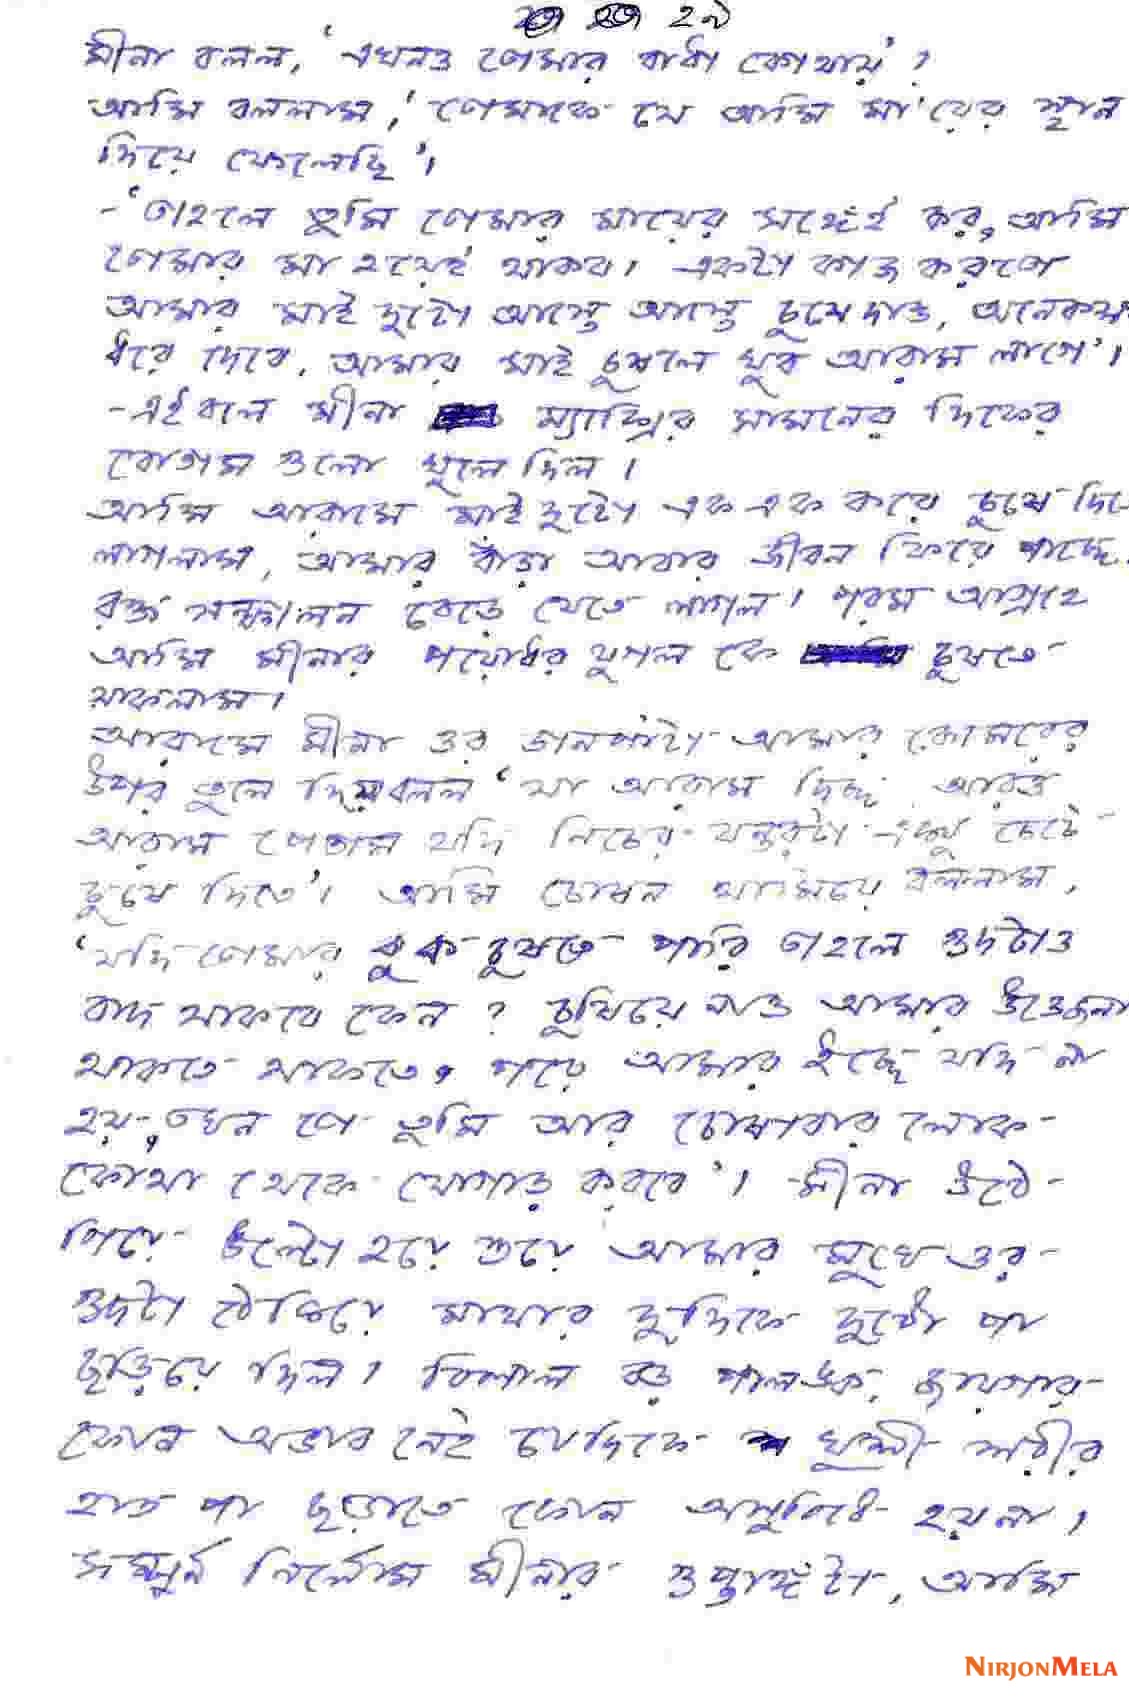 ২৯
মীনা বলল, 'এখনও তোমার বাধা কোথায়'?
আমি বললাম, 'তোমাকে যে আমি মা'য়ের স্থান
দিয়ে ফেলেছি'।
-'তাহলে তুমি তোমার মায়ের সঙ্গেই কর, আমি
তোমার মা হয়েই থাকব। একটা কাজ করতো
আমার মাই দুটো আস্তে আস্তে চুষে দাও, অনেকক্ষণ
ধরে দেবে, আমার মাই চুষলে খুব আরাম লাগে'।
-এই বলে মীনা ম্যাক্সির সামনের দিকের
বোতাম গুলো খুলে দিল।
আমি আরামে মাই দুটো এক এক করে চুষে দিতে
লাগলাম, আমার বাঁড়া আবার জীবন ফিরে পাচ্ছে,
রক্ত সঞ্চালন বেড়ে যেতে লাগল। পরম আগ্রহে
আমি মীনার পয়োধর যুগল কে চুষতে
থাকলাম।
আরামে মীনা ওর ডানপাটা আমার কোমরের
উপর তুলে দিয়ে বলল 'যা আরাম দিচ্ছ, আরও
আরাম পেতাম যদি নিচের যন্তরটা একটু চেটে
চুষে দিতে'। আমি চোষন থামিয়ে বললাম,
'যদি তোমার বুক চুষতে পারি তাহলে গুদটাও
বাদ থাকবে কেন? চুষিয়ে নাও আমার উত্তেজনা
থাকতে থাকতে, পরে আমার ইচ্ছে যদি না
হয়, তখন তো তুমি আর চোষাবার লোক
কোথা থেকে যোগাড় করবে'। মীনা উঠে
গিয়ে উল্টো হয়ে শুয়ে আমার মুখে ওর
গুদটা ঠেকিয়ে মাথার দুদিকে দুটো পা
ছড়িয়ে দিল। বিশাল বড় পালঙ্ক, জায়গার
কোন অভাব নেই যেদিকে খুশী শরীর
হাত পা ছড়াতে কোন অসুবিধে হয়না।
সম্পুর্ন নির্লোম মীনার গুপ্তাঙ্গটা, আমি
NIRJONMELA